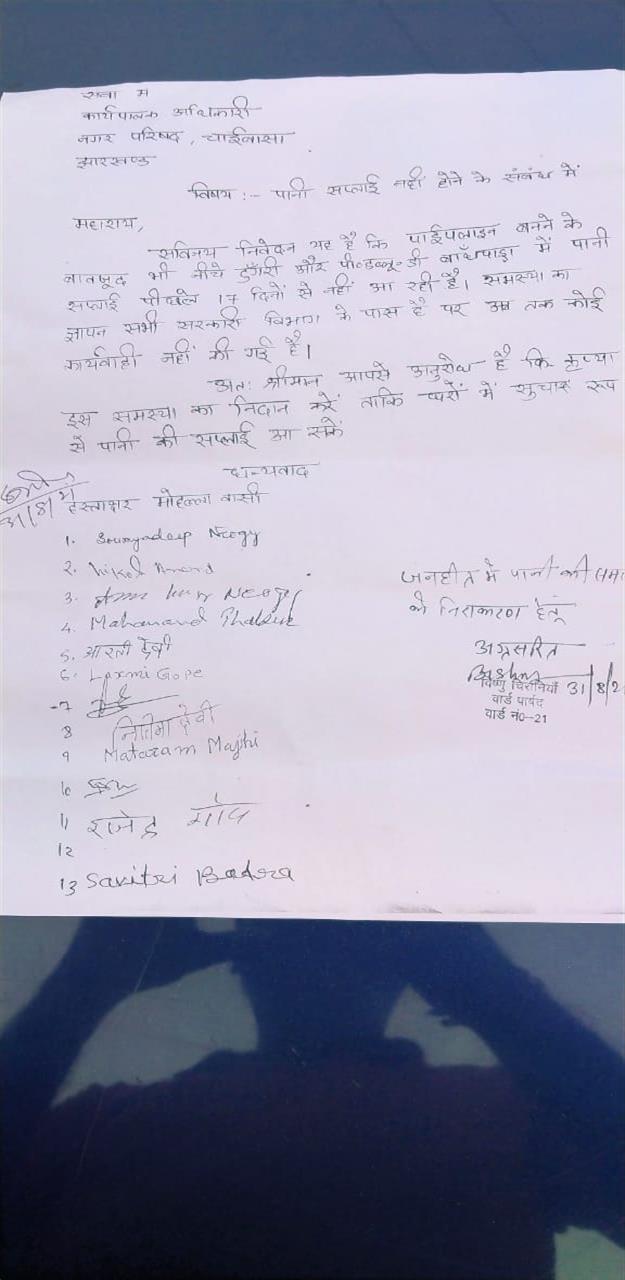 सेवा में
कार्यपालक अधिकारी
नगर परिषद, चाईबासा
झारखण्ड
विषय :- पानी सप्लाई नहीं होने के संबंध में
महाशय,
सविनय निवेदन यह है कि पाईपलाइन बनने के
बावजूद भी नीचे डुँगरी और पी०डब्लू०डी बाँधपाड़ा में पानी
सप्लाई पीछले 17 दिनों से नहीं आ रही है। समस्या का
ज्ञापन सभी सरकारी विभाग के पास है पर अब तक कोई
कार्यवाही नहीं की गई है।
अतः श्रीमान आपसे अनुरोध है कि कृप्या
इस समस्या का निदान करें ताकि घरों में सुचारू रूप
से पानी की सप्लाई आ सकें
धन्यवाद
हस्ताक्षर मोहल्ला वासी
1. Soumyadeep Neogy
2. Anand
3. Neogy
4. Mahanand
5. आरती देवी
6. Laxmi Gope
7
8 देवी
9 Mataram Majhi
10
11 राजेन्द्र गोप
12
13 Savitri Badra
जनहित में पानी की
के निराकरण हेतू
अग्रसारित
विष्णु चिरानियाँ 31/8/2
वार्ड पार्षद
वार्ड नं०-21